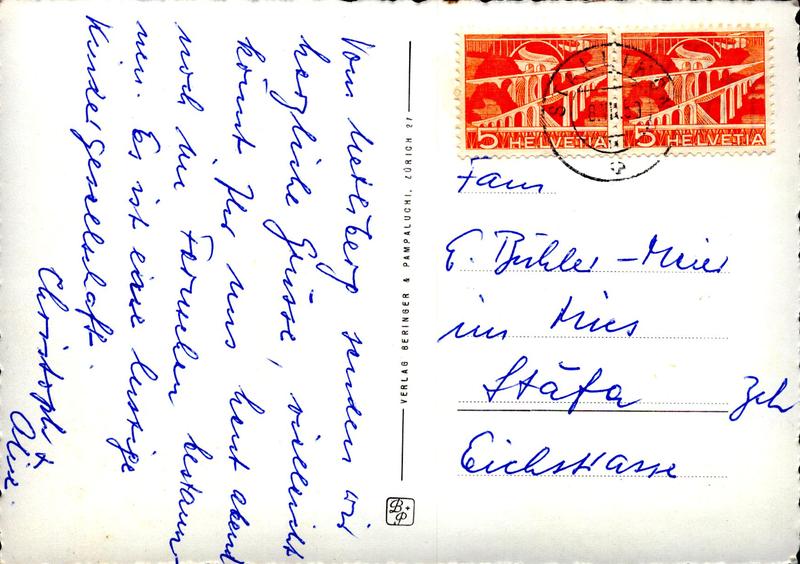 Vom Uetliberg senden wir
herzliche Grüsse, vielleicht
könnt Ihr uns heut abend
noch im Fernsehen bestaun-
nen. Es ist eine lustige
Kindergesellschaft.
Christoph &
Alice.
VERLAG BERINGER & PAMPALUCHI, ZÜRICH 27
B+P
5 HELVETIA
5 HELVETIA
Fam
E. Bühler-Meier
im Mies
Stäfa Zch
Eichstrasse